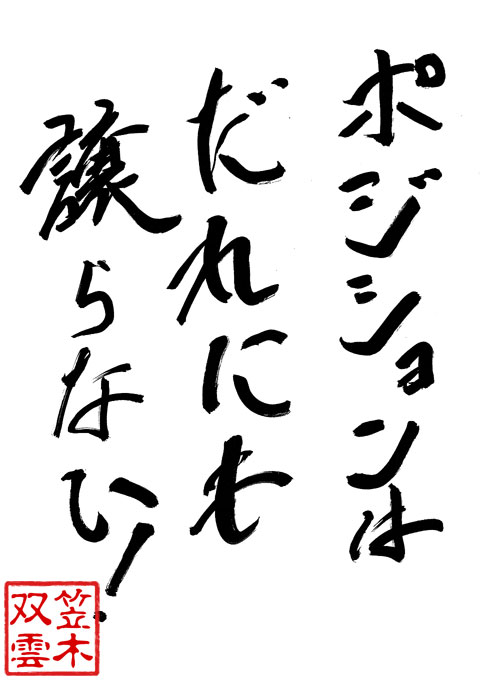 ポジションは
だれにも
譲らない!
笠木
双雲